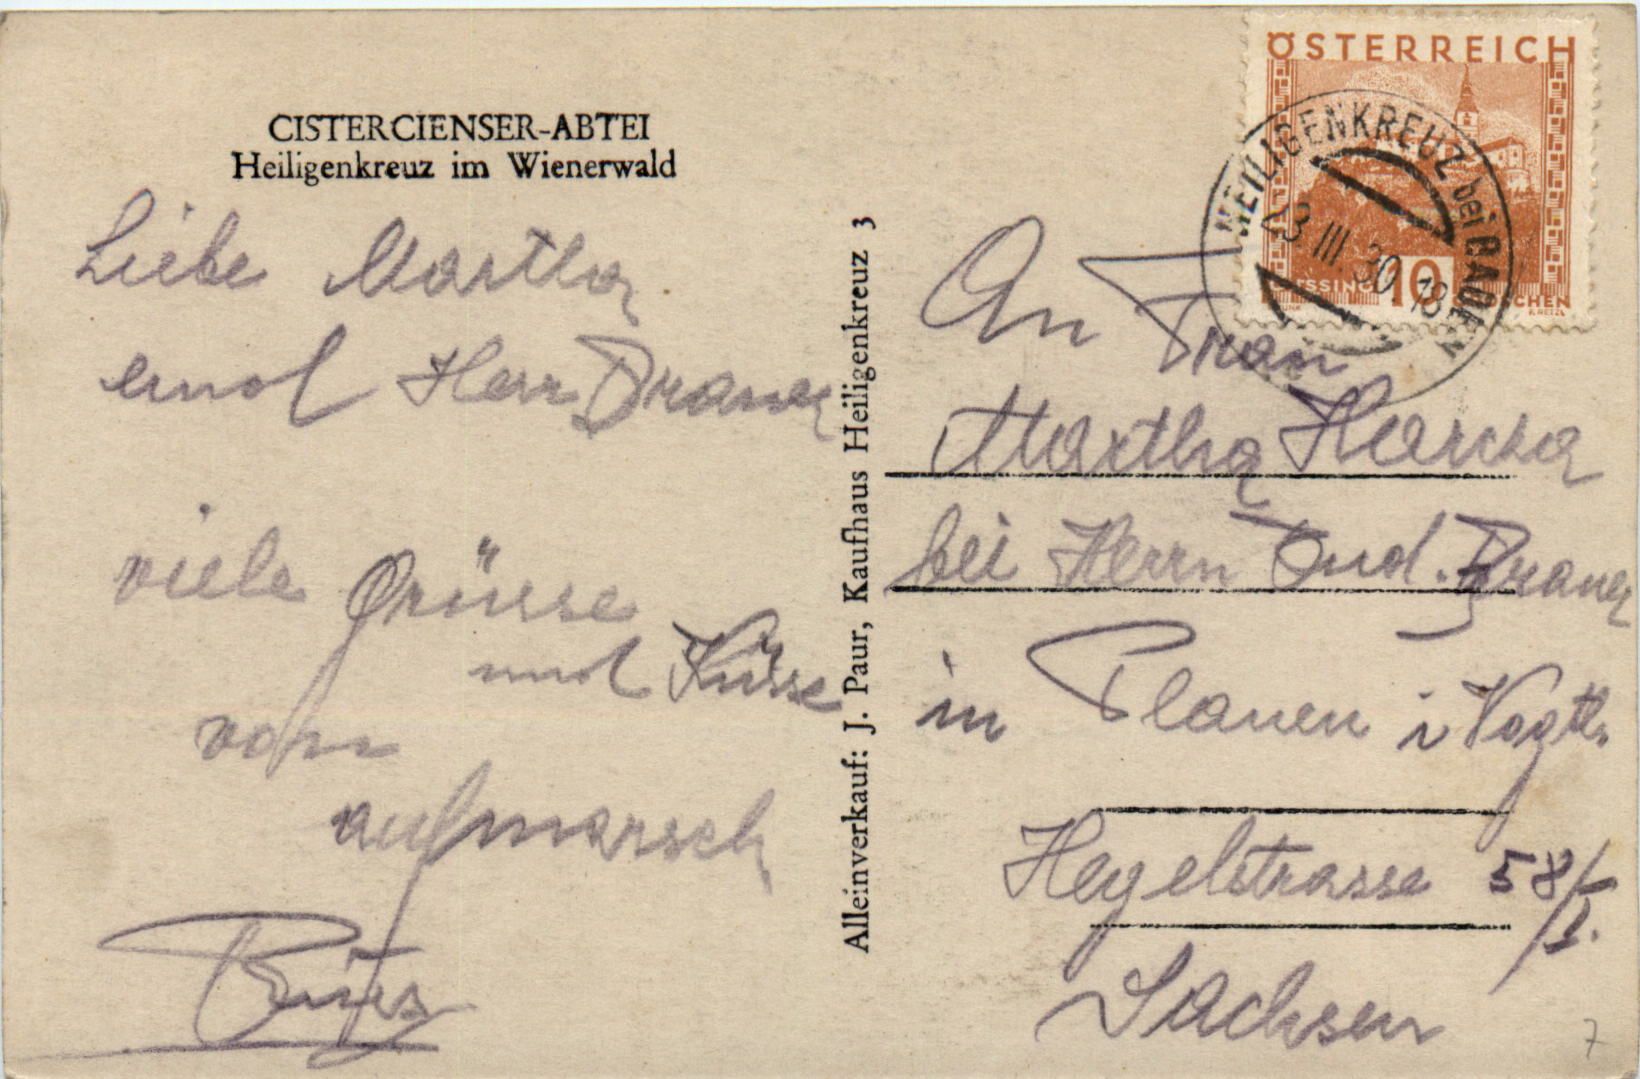 CISTERCIENSER-ABTEI
Heiligenkreuz im Wienerwald
Liebe Martha
und Herr Brauer
viele Grüsse
und Küsse
von
aufmarsch
Alleinverkauf: J. Paur, Kaufhaus Heiligenkreuz 3
ÖSTERREICH
HEILIGENKREUZ bei BADEN
23 III. 30 18
GÜSSING 10 GROSCHEN
An Frau
Martha
bei Herrn Brauer
in Plauen i Vogtl.
Hegelstrasse 58/I.
Sachsen
7